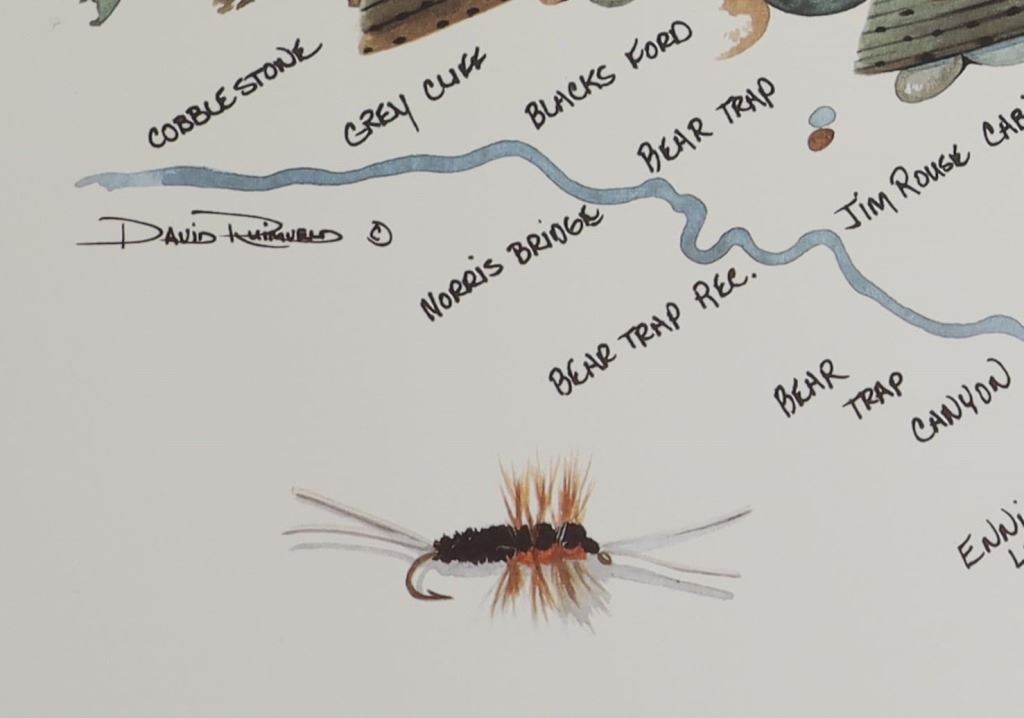 COBBLESTONE
GREY CLIFF
BLACKS FORD
BEAR TRAP
JIM ROUSE CABI
DAVID
©
NORRIS BRIDGE
BEAR TRAP REC.
BEAR
TRAP
CANYON
ENNI
L